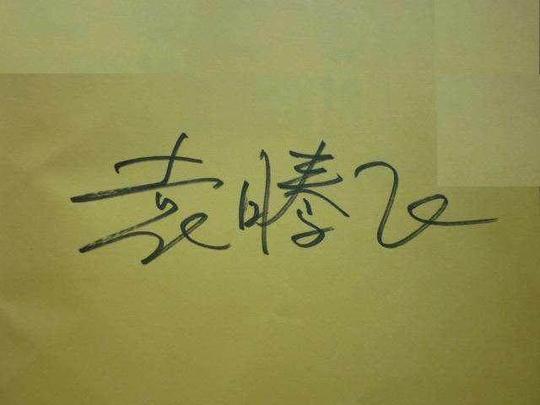 袁腾飞